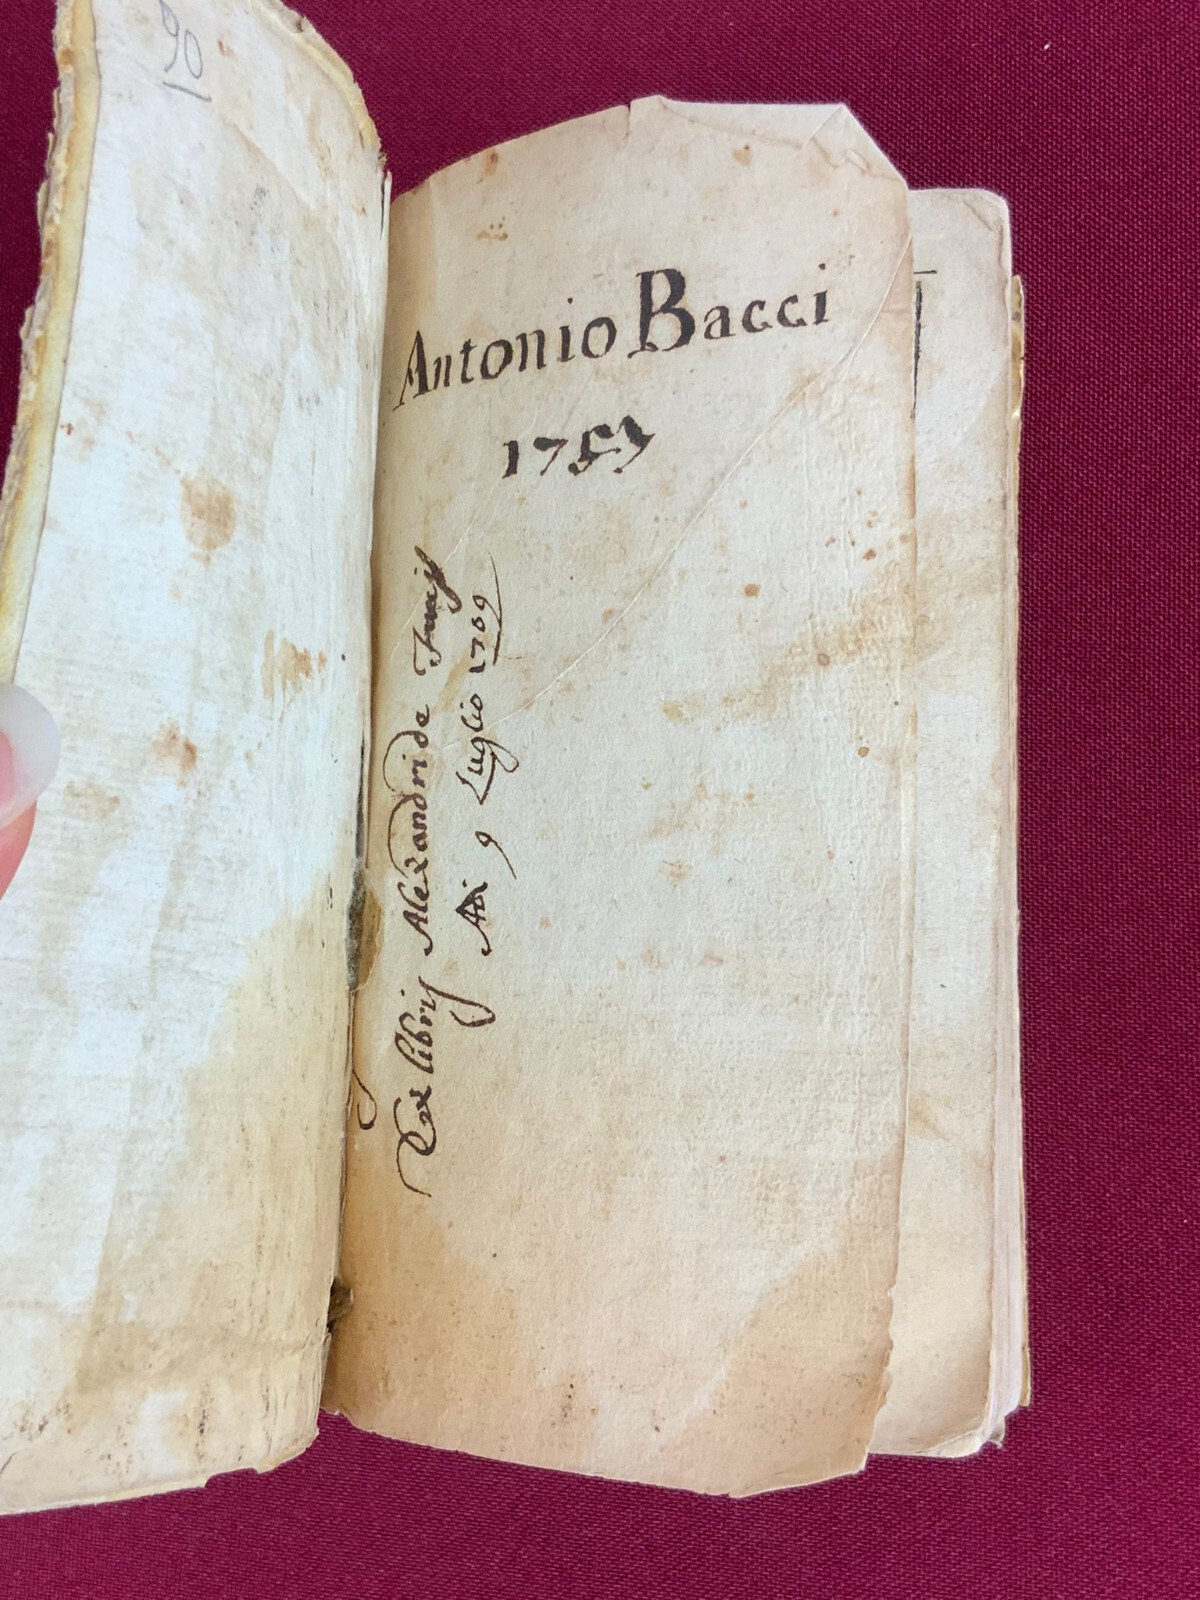 90
Antonio Bacci
1753
Ex libris Alexandri de
Adi 9 Luglio 1709